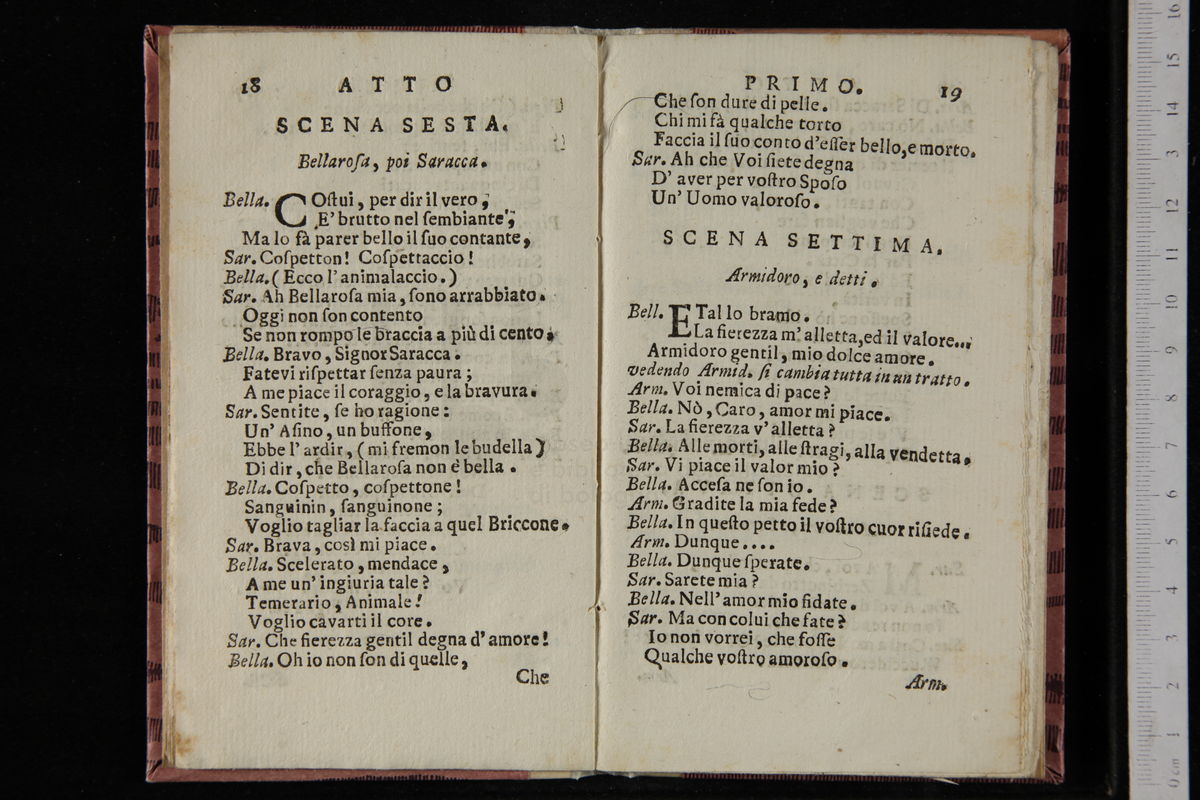 18 ATTO
SCENA SESTA.
Bellaroſa, poi Saracca.
Bella. COſtui, per dir il vero,
E' brutto nel ſembiante,
Ma lo fà parer bello il ſuo contante,
Sar. Coſpetton! Coſpettaccio!
Bella. (Ecco l'animalaccio.)
Sar. Ah Bellaroſa mia, ſono arrabbiato.
Oggi non ſon contento
Se non rompo le braccia a più di cento.
Bella. Bravo, Signor Saracca.
Fatevi riſpettar ſenza paura;
A me piace il coraggio, e la bravura.
Sar. Sentite, ſe ho ragione:
Un' Aſino, un buffone,
Ebbe l'ardir, (mi fremon le budella)
Di dir, che Bellaroſa non è bella.
Bella. Coſpetto, coſpettone!
Sanguinin, ſanguinone;
Voglio tagliar la faccia a quel Briccone.
Sar. Brava, così mi piace.
Bella. Scelerato, mendace,
A me un' ingiuria tale?
Temerario, Animale!
Voglio cavarti il core.
Sar. Che fierezza gentil degna d'amore!
Bella. Oh io non ſon di quelle,
Che
PRIMO. 19
Che ſon dure di pelle.
Chi mi fà qualche torto
Faccia il ſuo conto d'eſſer bello, e morto.
Sar. Ah che Voi ſiete degna
D' aver per voſtro Spoſo
Un' Uomo valoroſo.
SCENA SETTIMA.
Armidoro, e detti.
Bell. E Tal lo bramo.
La fierezza m'alletta, ed il valore...
Armidoro gentil, mio dolce amore.
vedendo Armid. ſi cambia tutta in un tratto.
Arm. Voi nemica di pace?
Bella. Nò, Caro, amor mi piace.
Sar. La fierezza v'alletta?
Bella. Alle morti, alle ſtragi, alla vendetta.
Sar. Vi piace il valor mio?
Bella. Acceſa ne ſon io.
Arm. Gradite la mia fede?
Bella. In queſto petto il voſtro cuor riſiede.
Arm. Dunque....
Bella. Dunque ſperate.
Sar. Sarete mia?
Bella. Nell'amor mio fidate.
Sar. Ma con colui che fate?
Io non vorrei, che foſſe
Qualche voſtro amoroſo.
Arm.
0 cm 1 2 3 4 5 6 7 8 9 10 11 12 13 14 15 16